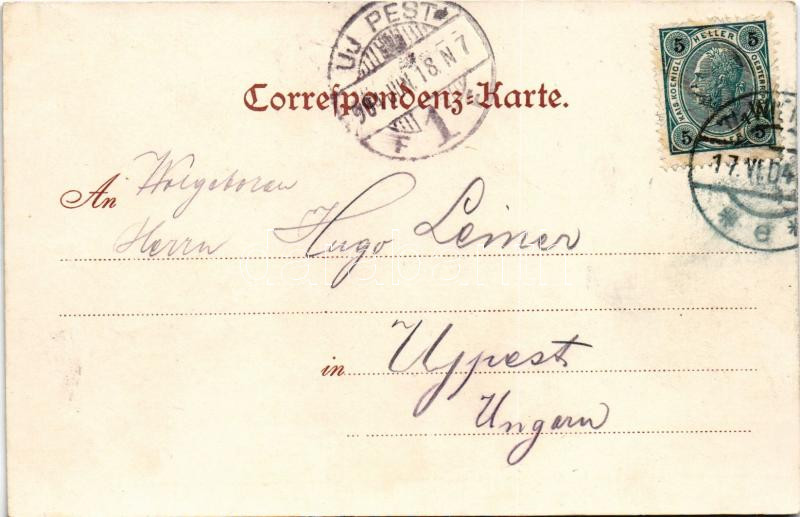 UJ PEST
904 JUN. 18. N 7
F 1
5 HELLER 5
KAIS. KOENIGL.
5 5
WIEN
17. VI. 04
* e *
Correspondenz-Karte.
An Wolgeboren
Herrn Hugo Leimer
in Ujpest
Ungarn